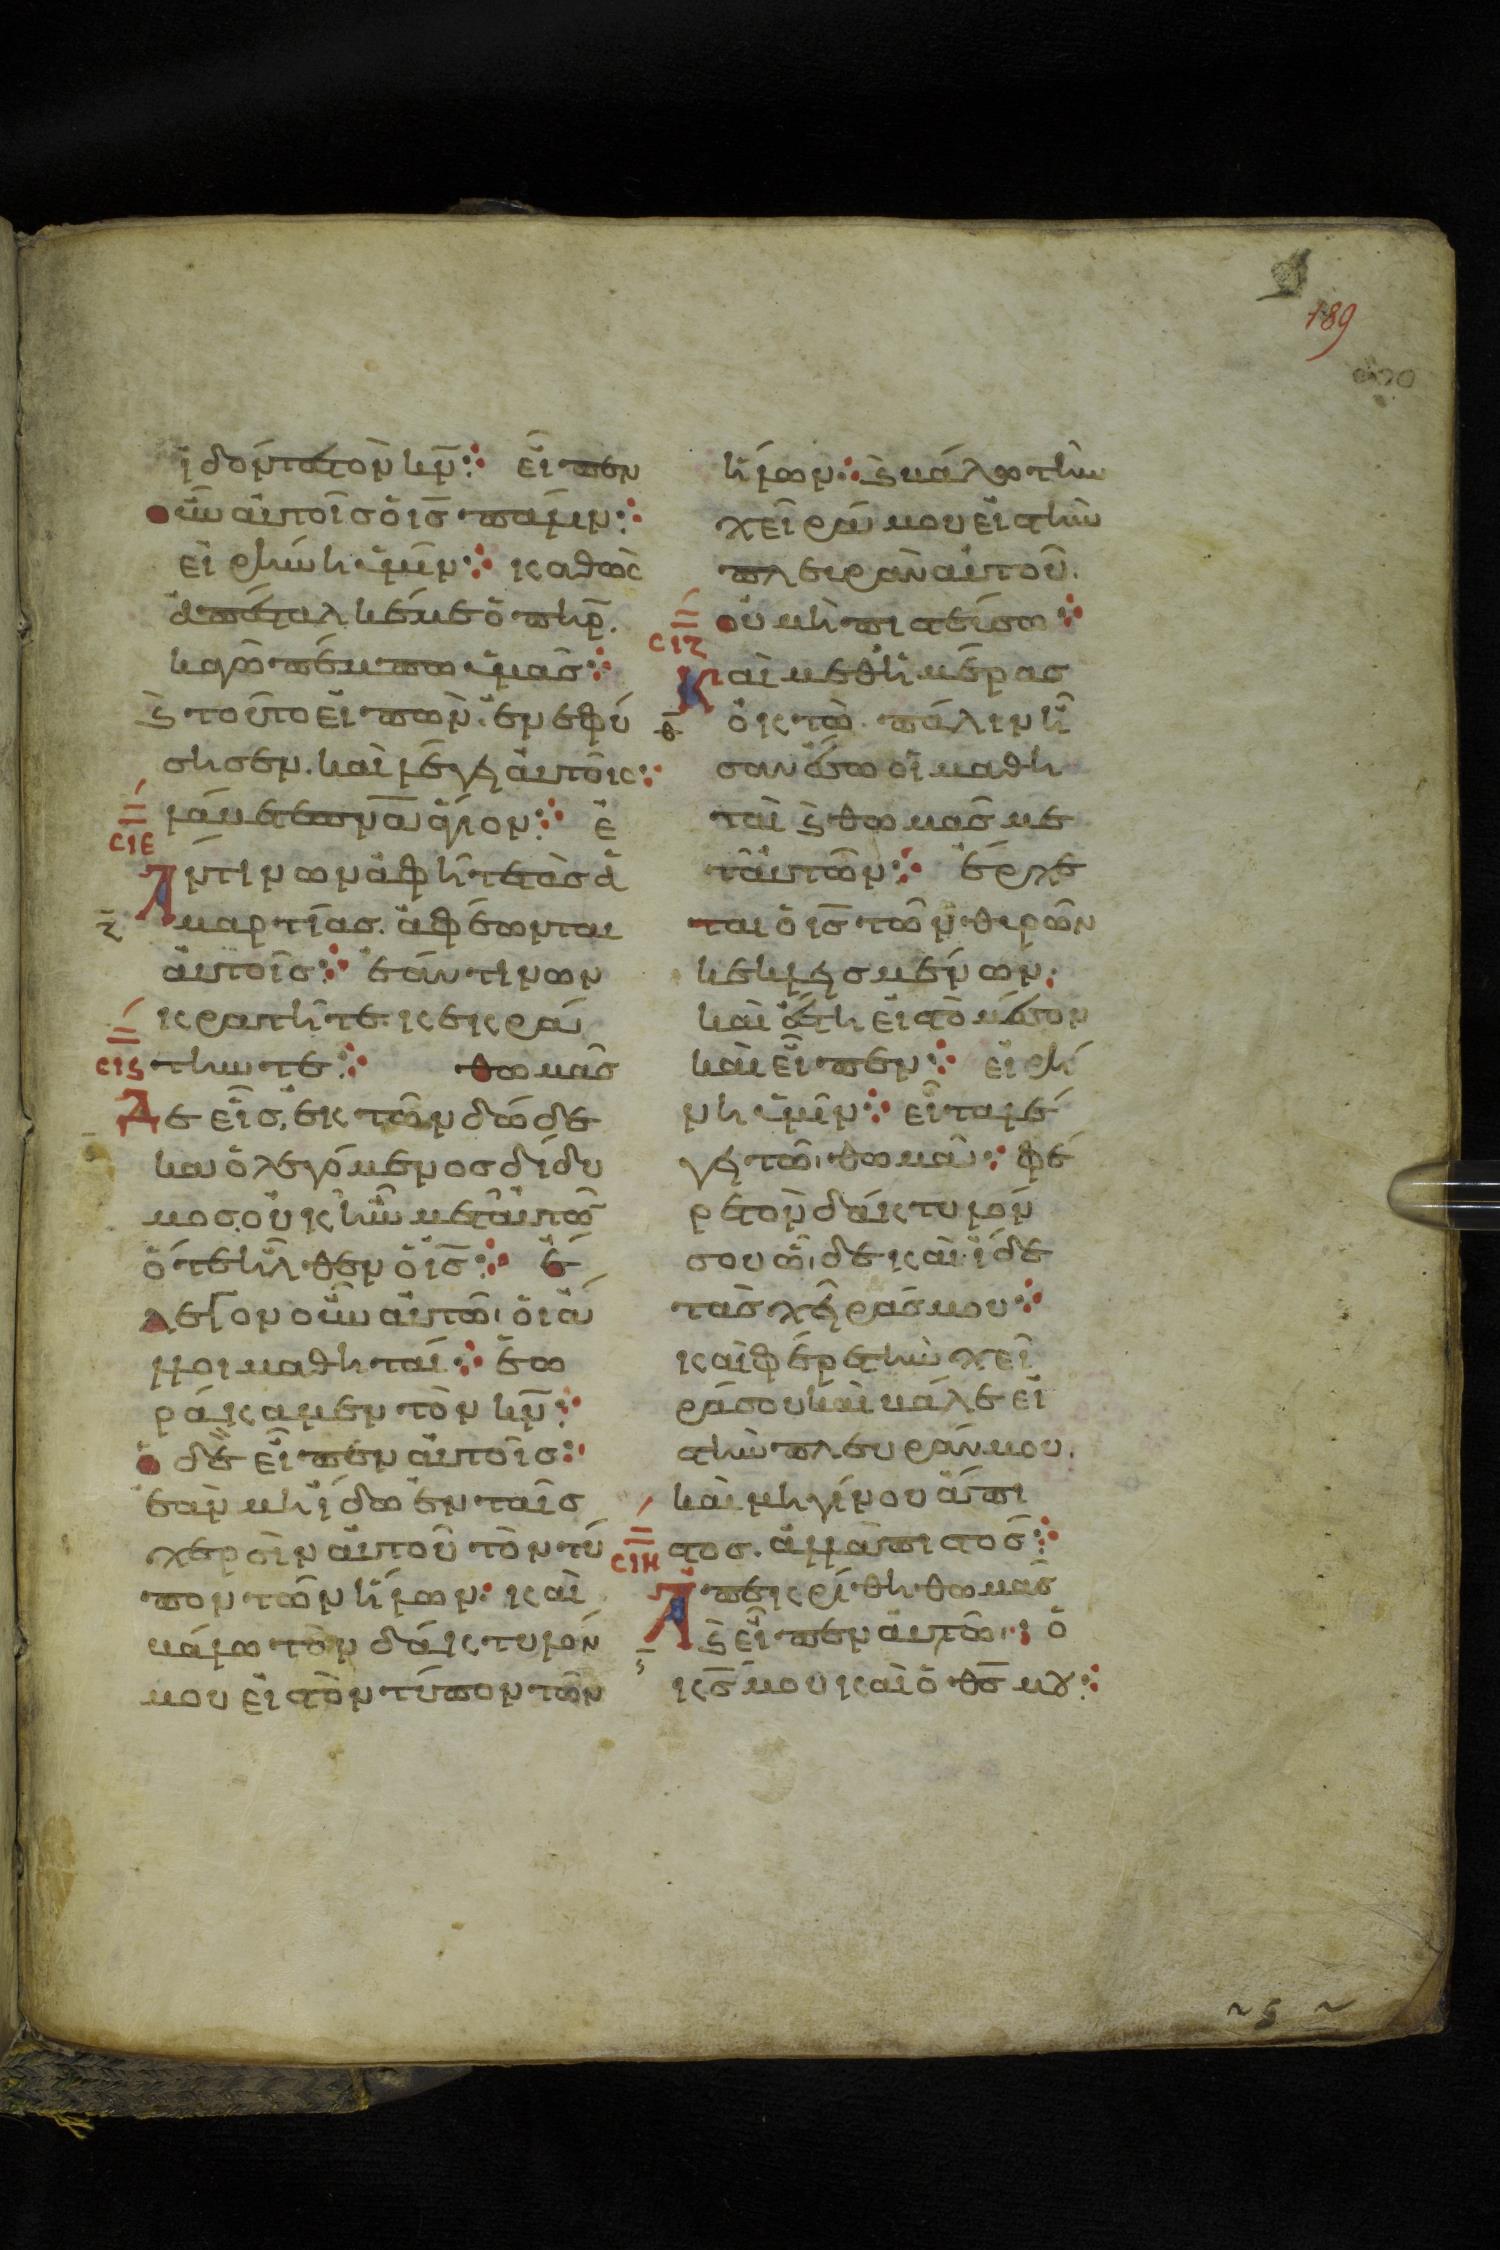 189
ἰδόντες τὸν κν̄ εἶπεν
οὖν αὐτοῖς ὁ ις̄ πάλιν
εἰρήνη ὑμῖν καθὼς
ἀπέσταλκέ με ὁ πηρ̄.
κἀγὼ πέμπω ὑμᾶς
ϗ τοῦτο εἰπὼν ἐνεφύ
σησεν. καὶ λέγει αὐτοῖς
λάβετε πνᾱ ἅγιον
ϹΙΕ
Ἄν τινων ἀφῆτε τὰς ἁ
μαρτίας. ἀφέωνται
αὐτοῖς ἐάν τινων
κρατῆτε. κεκρά
ϹΙϚ
τηνται θωμᾶς
Δὲ εἷς, ἐκ τῶν δώδε
κα ὁ λεγόμενος δίδυ
μος. οὐκ ἦν μετ' αὐτῶν
ὅτε ἦλθεν ὁ ις̄ ἔ
λεγον οὖν αὐτῶ, οἱ ἄλ
λοι μαθηταί ἑω
ράκαμεν τὸν κν̄
ὁ δὲ εἶπεν αὐτοῖς
ἐὰν μὴ ἴδω ἐν ταῖς
χερσὶν αὐτοῦ τὸν τύ
πον τῶν ἥλων καὶ
βάλω τὸν δάκτυλόν
μου εἰς τὸν τύπον τῶν
ἥλων ϗ βάλω τὴν
χεῖρά μου εἰς τὴν
πλευρὰν αὐτοῦ.
οὐ μὴ πιστεύσω
ϹΙΖ
Καὶ μεθ' ἡμέρας
ὀκτὼ πάλιν ἦ
σαν ἔσω οἱ μαθη
ταὶ ϗ θωμᾶς με
τ' αὐτῶν ἔρχε
ται ὁ ις̄ τῶν θυρῶν
κεκλεισμένων.
καὶ ἔστη εἰς τὸ μέσον
καὶ εἶπεν εἰρή
νη ὑμῖν εἶτα λέ
γει τῶ, θωμᾶ φέ
ρε τὸν δάκτυλόν
σου ὧδε καὶ ἴδε
τὰς χεῖράς μου
καὶ φέρε τὴν χεῖ
ρά σου καὶ βάλε εἰς
τὴν πλευράν μου.
καὶ μὴ γίνου ἄπι
στος. ἀλλὰ πιστός
ϹΙΗ
Ἀπεκρίθη θωμᾶς
ϗ εἶπεν αὐτῶ, ὁ
κς̄ μου καὶ ὁ θς̄ μου